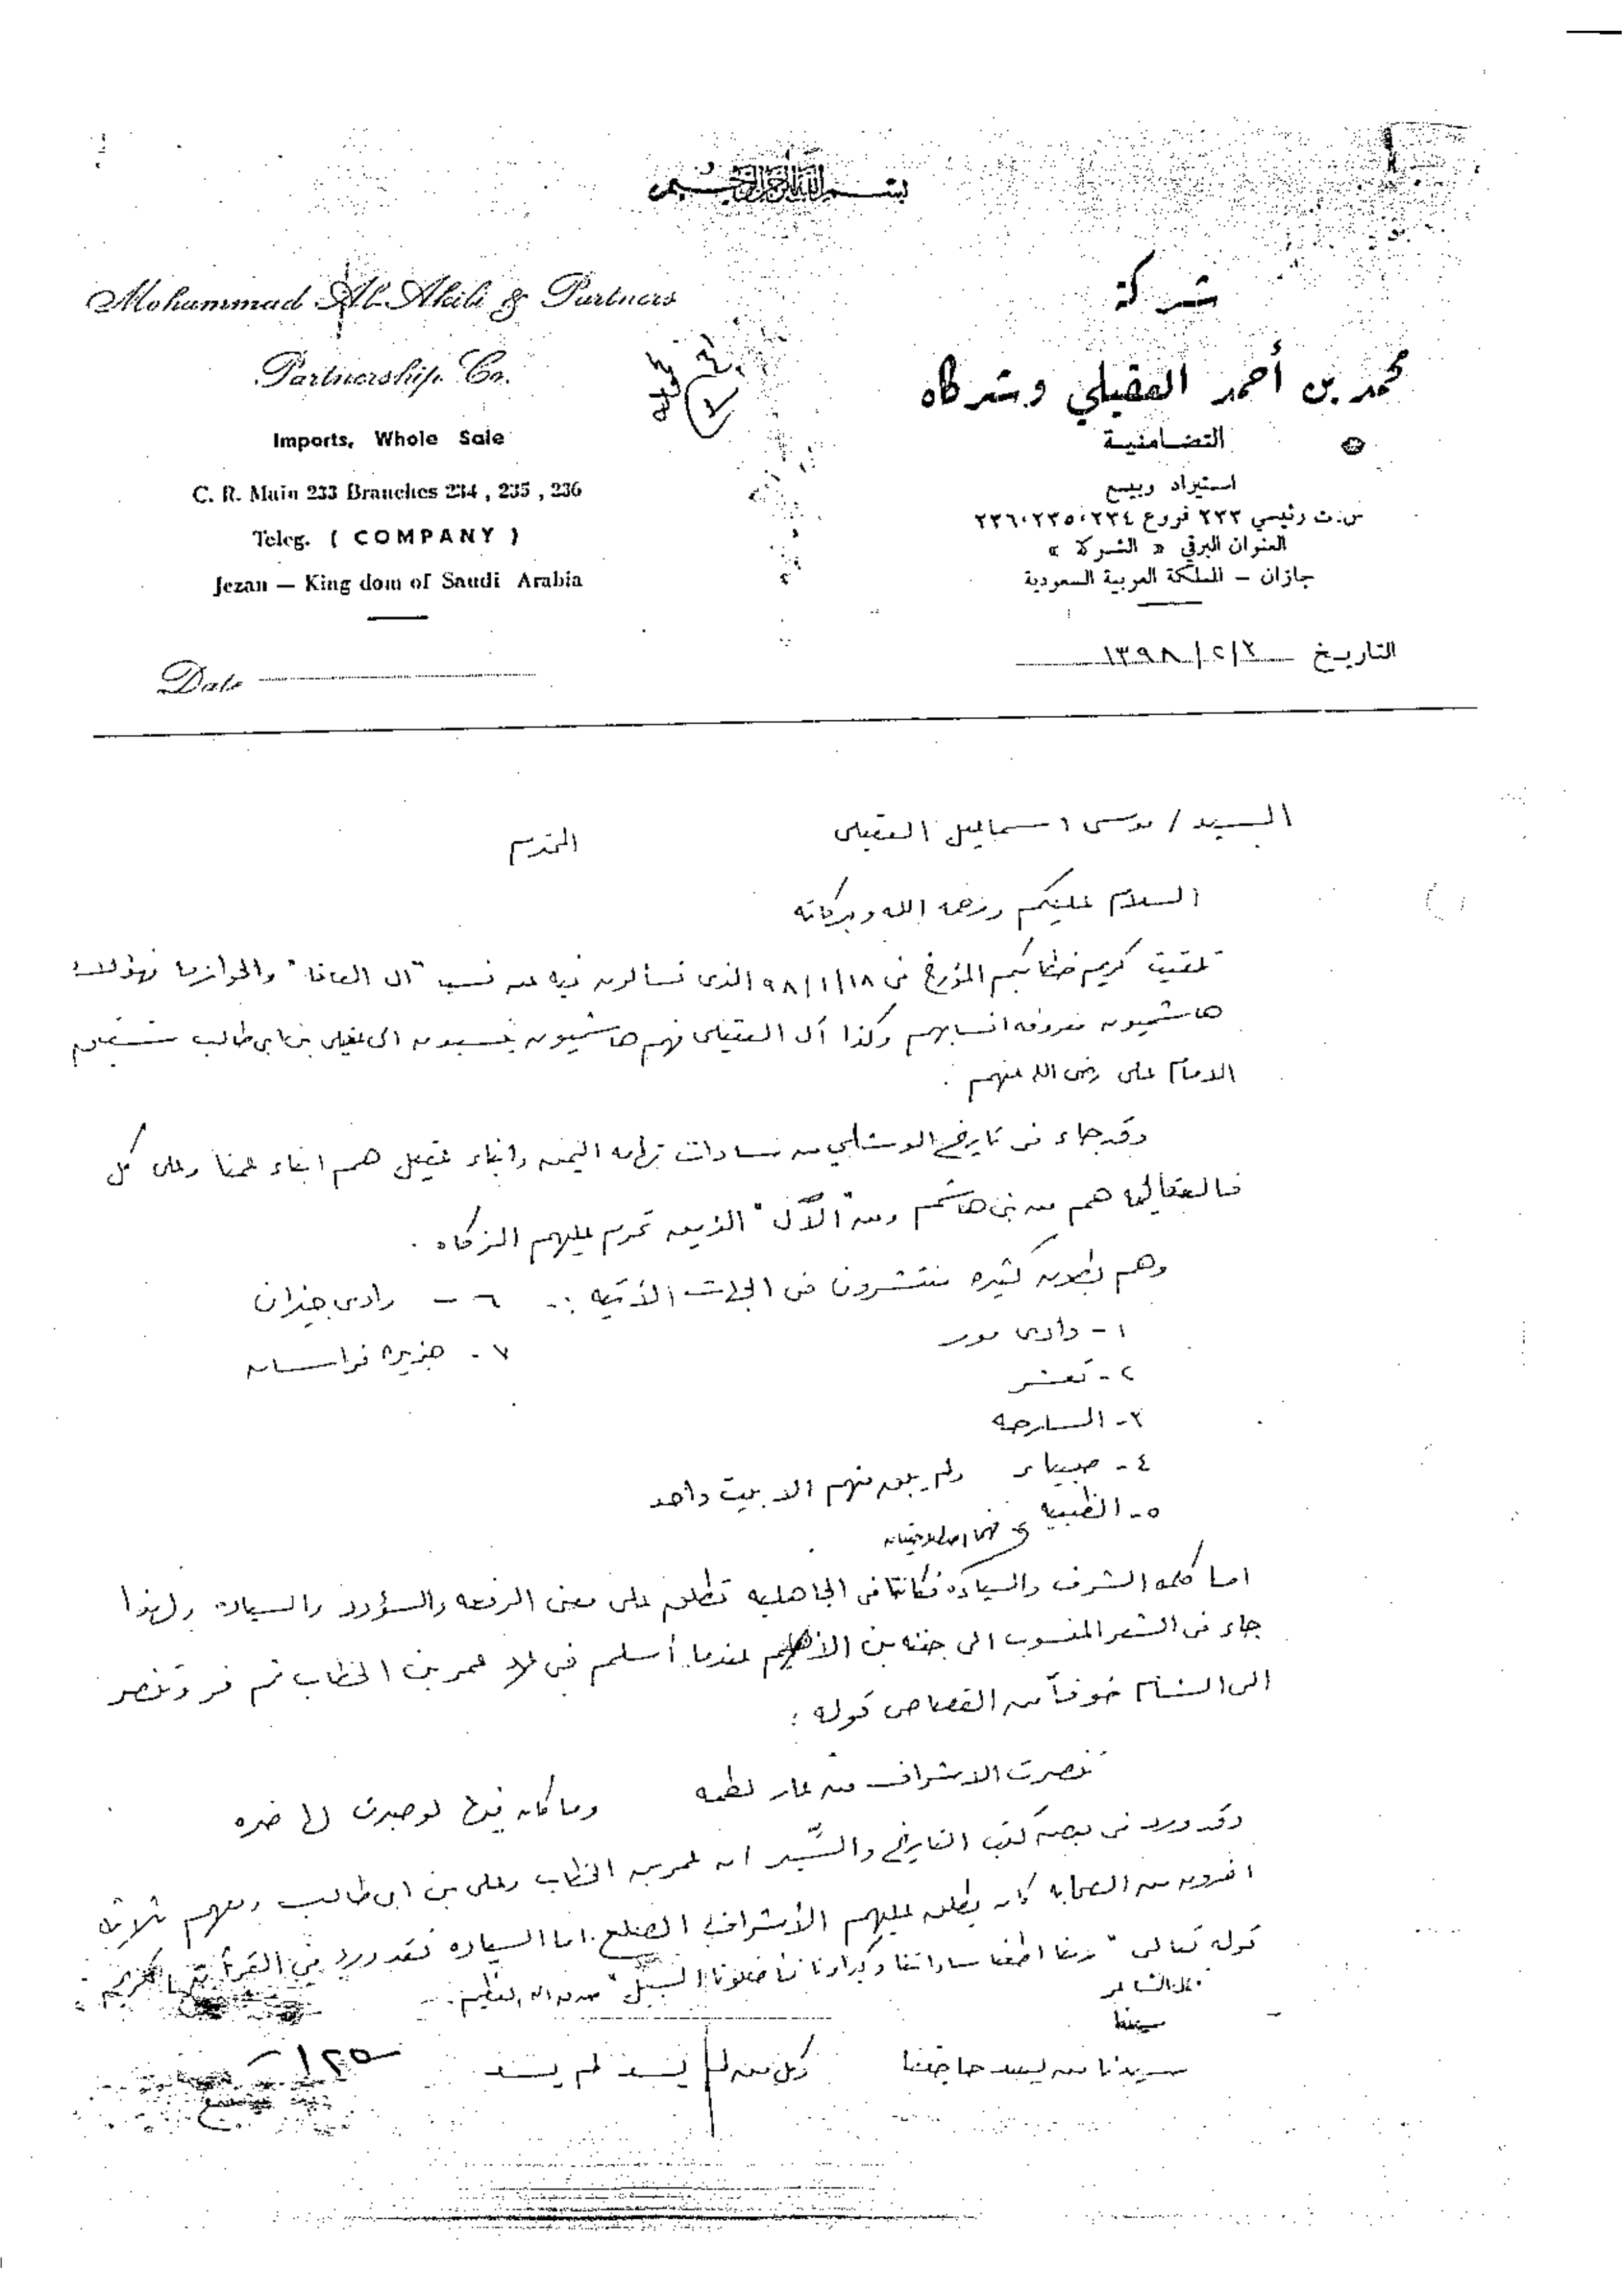 بسم الله الرحمن الرحيم
Mohammad Al-Akili & Partners
Partnership Co.
Imports, Whole Sale
C. R. Main 233 Branches 234 , 235 , 236
Teleg. ( COMPANY )
Jezan — King dom of Saudi Arabia
Date
شركة
محمد بن أحمد العقيلي وشركاه
التضامنية
استيراد وبيع
س.ت رئيسي ٢٣٣ فروع ٢٣٤،٢٣٥،٢٣٦
العنوان البرقي « الشركة »
جازان – المملكة العربية السعودية
التاريخ ١٣٩٨/٢/٢
السيد / موسى اسماعيل العقيلى المحترم
السلام عليكم ورحمة الله وبركاته
تلقيت كريم خطابكم المؤرخ فى ٩٨/١/١٨ الذى تسألون فيه عن نسب "آل العافا" والحوازما فهؤلاء
هاشميون معروفه انسابهم وكذا آل العقيلى فهم هاشميون ينسبون الى عقيل بن ابى طالب شقيق
الامام على رضى الله عنهم .
وقد جاء فى تاريخ الوشلي من سادات تهامه اليمن وابناء عقيل هم ابناء عمنا وعلى كل
فالعقاليه هم من بنى هاشم ومن "الآل" الذين تحرم عليهم الزكاه .
وهم بطون كثيره منتشرون فى الجهات الآتيه :-
١ - وادى مور
٢ - تعشر
٣ - السارحه
٤ - صبياء ولم يبق منهم الا بيت واحد
٥ - الظبيه
٦ - وادى جيزان
٧ - جزيره فراسان
اما كلمه الشرف والسياده فكانتا فى الجاهليه تطلق على معنى الرفعه والسؤدد والسياده ولهذا
جاء فى الشعر المنسوب الى جبله بن الأيهم عندما أسلم فى عهد عمر بن الخطاب ثم فر وتنصر
الى الشام خوفاً من القصاص قوله :
تنصرت الاشراف من عار لطمه وما كان فيها لو صبرت لها ضره
وقد ورد فى بعض كتب التاريخ والسِّير ان عمر بن الخطاب وعلى بن ابى طالب ومعهم ثلاثه
اخرون من الصحابه كان يطلق عليهم الأشراف الصلع. اما السياده فقد ورد فى القرآن الكريم
قوله تعالى "ربنا اطعنا ساداتنا وكبراءنا فأضلونا السبيل" صدق الله العظيم.
وقال الشاعر
سيدنا من يسد حاجتنا وكل من لم يسد لم يسد